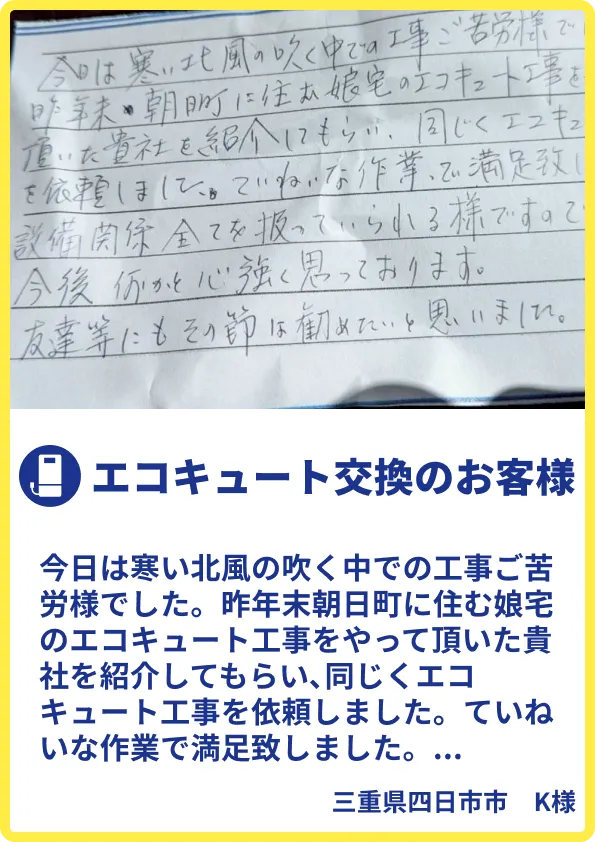 今日は寒い北風の吹く中での工事ご苦労様で
昨年末・朝日町に住む娘宅のエコキュート工事を
頂いた貴社を紹介してもらい、同じくエコキュ
を依頼しました。ていねいな作業で満足致し
設備関係全てを扱っていられる様ですので
今後何かと心強く思っております。
友達等にもその節は勧めたいと思いました。
エコキュート交換のお客様
今日は寒い北風の吹く中での工事ご苦
労様でした。昨年末朝日町に住む娘宅
のエコキュート工事をやって頂いた貴
社を紹介してもらい､同じくエコ
キュート工事を依頼しました。ていね
いな作業で満足致しました。...
三重県四日市市　K様